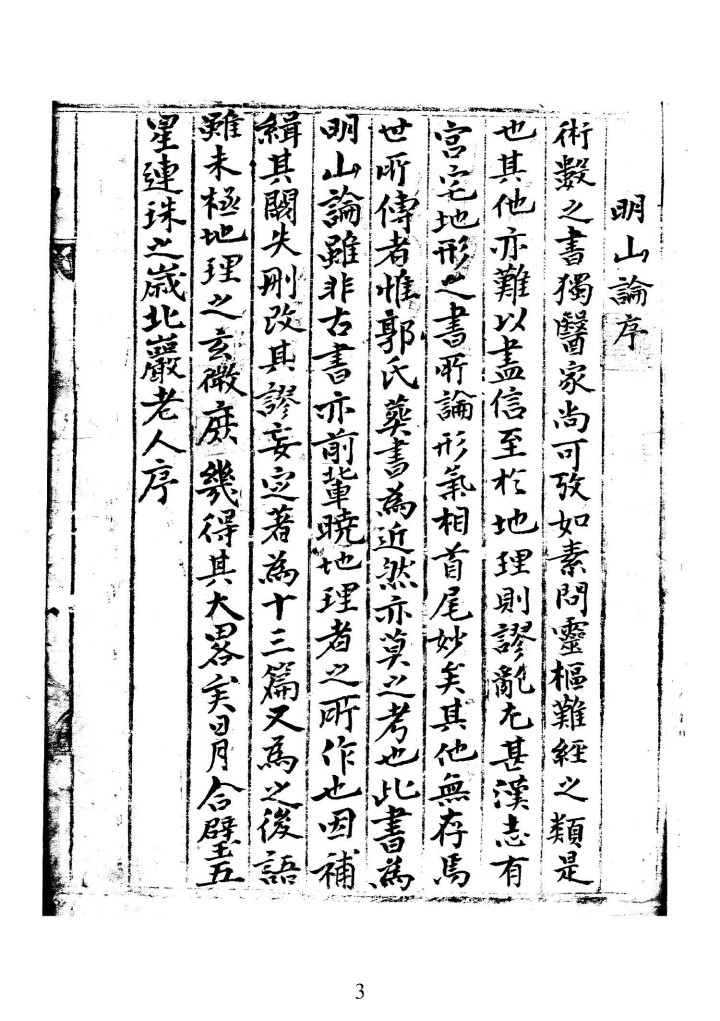 明山論序
術數之書獨醫家尚可攷如素問靈樞難經之類是
也其他亦難以盡信至於地理則謬亂尤甚漢志有
宮宅地形之書所論形氣相首尾妙矣其他無存焉
世所傳者惟郭氏葬書為近然亦莫之考也此書為
明山論雖非古書亦前輩曉地理者之所作也因補
緝其闕失刪改其謬妄定著為十三篇又為之後語
雖未極地理之玄微庶幾得其大畧矣日月合璧五
星連珠之歲北巖老人序
3